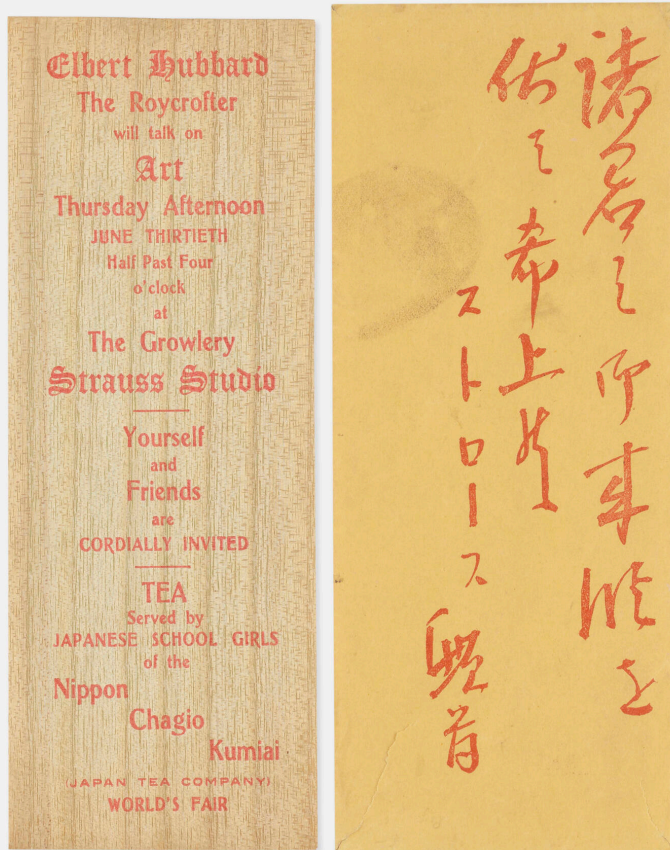 Elbert Hubbard
The Roycrofter
will talk on
Art
Thursday Afternoon
JUNE THIRTIETH
Half Past Four
o'clock
at
The Growlery
Strauss Studio
Yourself
and
Friends
are
CORDIALLY INVITED
TEA
Served by
JAPANESE SCHOOL GIRLS
of the
Nippon
Chagio
Kumiai
(JAPAN TEA COMPANY)
WORLD'S FAIR
諸君之御来臨を
伏之希上候
ストロース